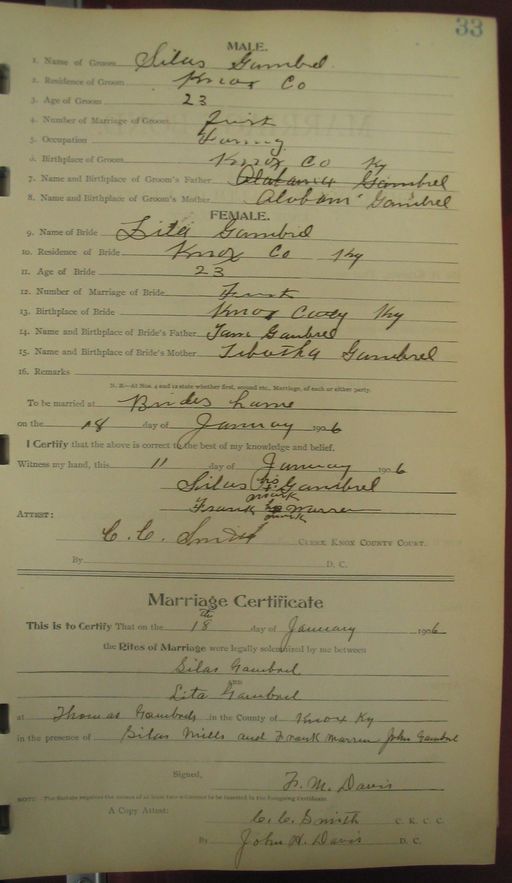 33
MALE.
1. Name of Groom Silas Gambrel
2. Residence of Groom Knox Co
3. Age of Groom 23
4. Number of Marriage of Groom First
5. Occupation Farming
6. Birthplace of Groom Knox Co Ky
7. Name and Birthplace of Groom's Father Alabama Gambrel
8. Name and Birthplace of Groom's Mother Alabam Gambrel
FEMALE.
9. Name of Bride Lita Gambrel
10. Residence of Bride Knox Co Ky
11. Age of Bride 23
12. Number of Marriage of Bride First
13. Birthplace of Bride Knox Ky
14. Name and Birthplace of Bride's Father Gambrel
15. Name and Birthplace of Bride's Mother Tibatha Gambrel
16. Remarks
N. B.—At Nos. 4 and 12 state whether first, second etc., Marriage, of each or either party.
To be married at Brides home
on the 18 day of January 1906
I Certify that the above is correct to the best of my knowledge and belief.
Witness my hand, this 11 day of January 1906
Silas his x mark Gambrel
Frank his x mark Warren
ATTEST:
C. C. Smith CLERK KNOX COUNTY COURT.
By D. C.
Marriage Certificate
This is to Certify That on the 18th day of January 1906
the Rites of Marriage were legally solemnized by me between
Silas Gambrel
AND
Lita Gambrel
at Thomas Gambrels in the County of Knox Ky
in the presence of Silas Mills and Frank Warren John Gambrel
Signed, F. M. Davis
NOTE: The Statute requires the names of at least two witnesses to be inserted in the foregoing Certificate
A Copy Attest: C. C. Smith C. K. C. C.
By John H. Davis D. C.